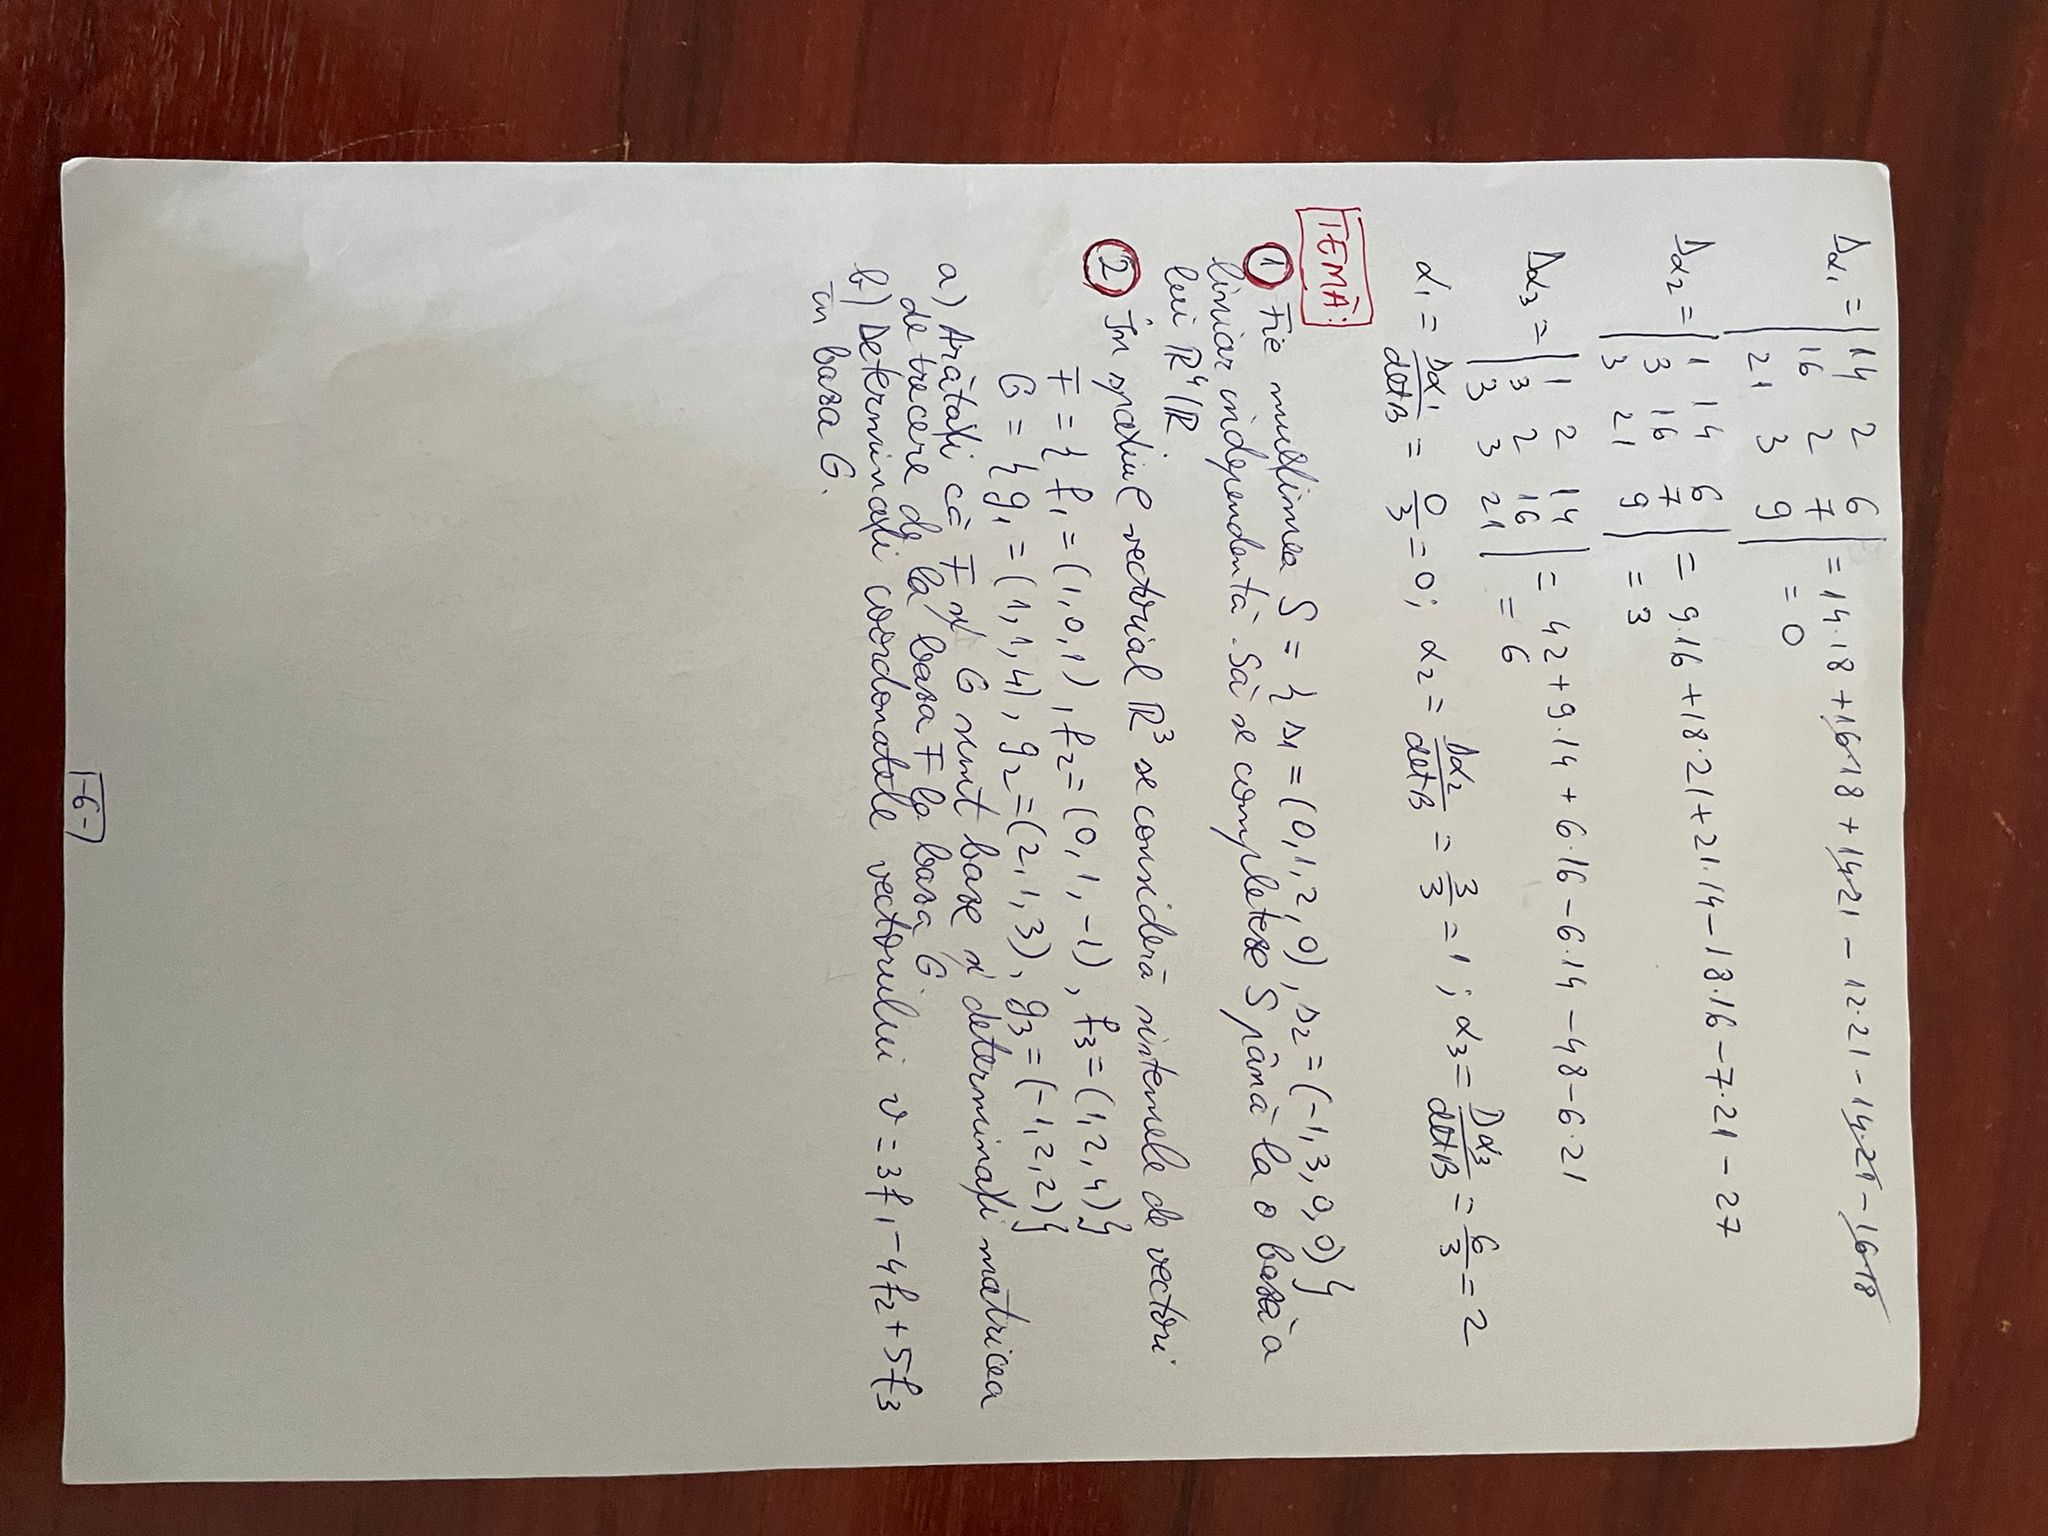 Δα₁ = | 14 2 6 | = 14·18 + 16·18 + 14·21 − 12·21 − 14·21 − 16·18
| 16 2 7 |
| 21 3 9 | = 0
Δα₂ = | 1 14 6 | = 9·16 + 18·21 + 21·14 − 18·16 − 7·21 − 27
| 3 16 7 |
| 3 21 9 | = 3
Δα₃ = | 1 2 14 | = 42 + 9·14 + 6·16 − 6·14 − 48 − 6·21
| 3 2 16 |
| 3 3 21 | = 6
α₁ = Δα₁/detB = 0/3 = 0; α₂ = Δα₂/detB = 3/3 = 1; α₃ = Δα₃/detB = 6/3 = 2
TEMĂ:
① Fie mulțimea S = { s₁ = (0,1,2,0), s₂ = (−1,3,0,0)}
liniar independentă. Să se completeze S până la o bază a
lui R⁴/R
② În spațiul vectorial R³ se consideră sistemele de vectori
F = { f₁ = (1,0,1), f₂ = (0,1,−1), f₃ = (1,2,4)}
G = { g₁ = (1,1,4), g₂ = (2,1,3), g₃ = (−1,2,2)}
a) Arătați că F și G sunt baze și determinați matricea
de trecere de la baza F la baza G
b) Determinați coordonatele vectorului v = 3f₁ − 4f₂ + 5f₃
în baza G.
-6-